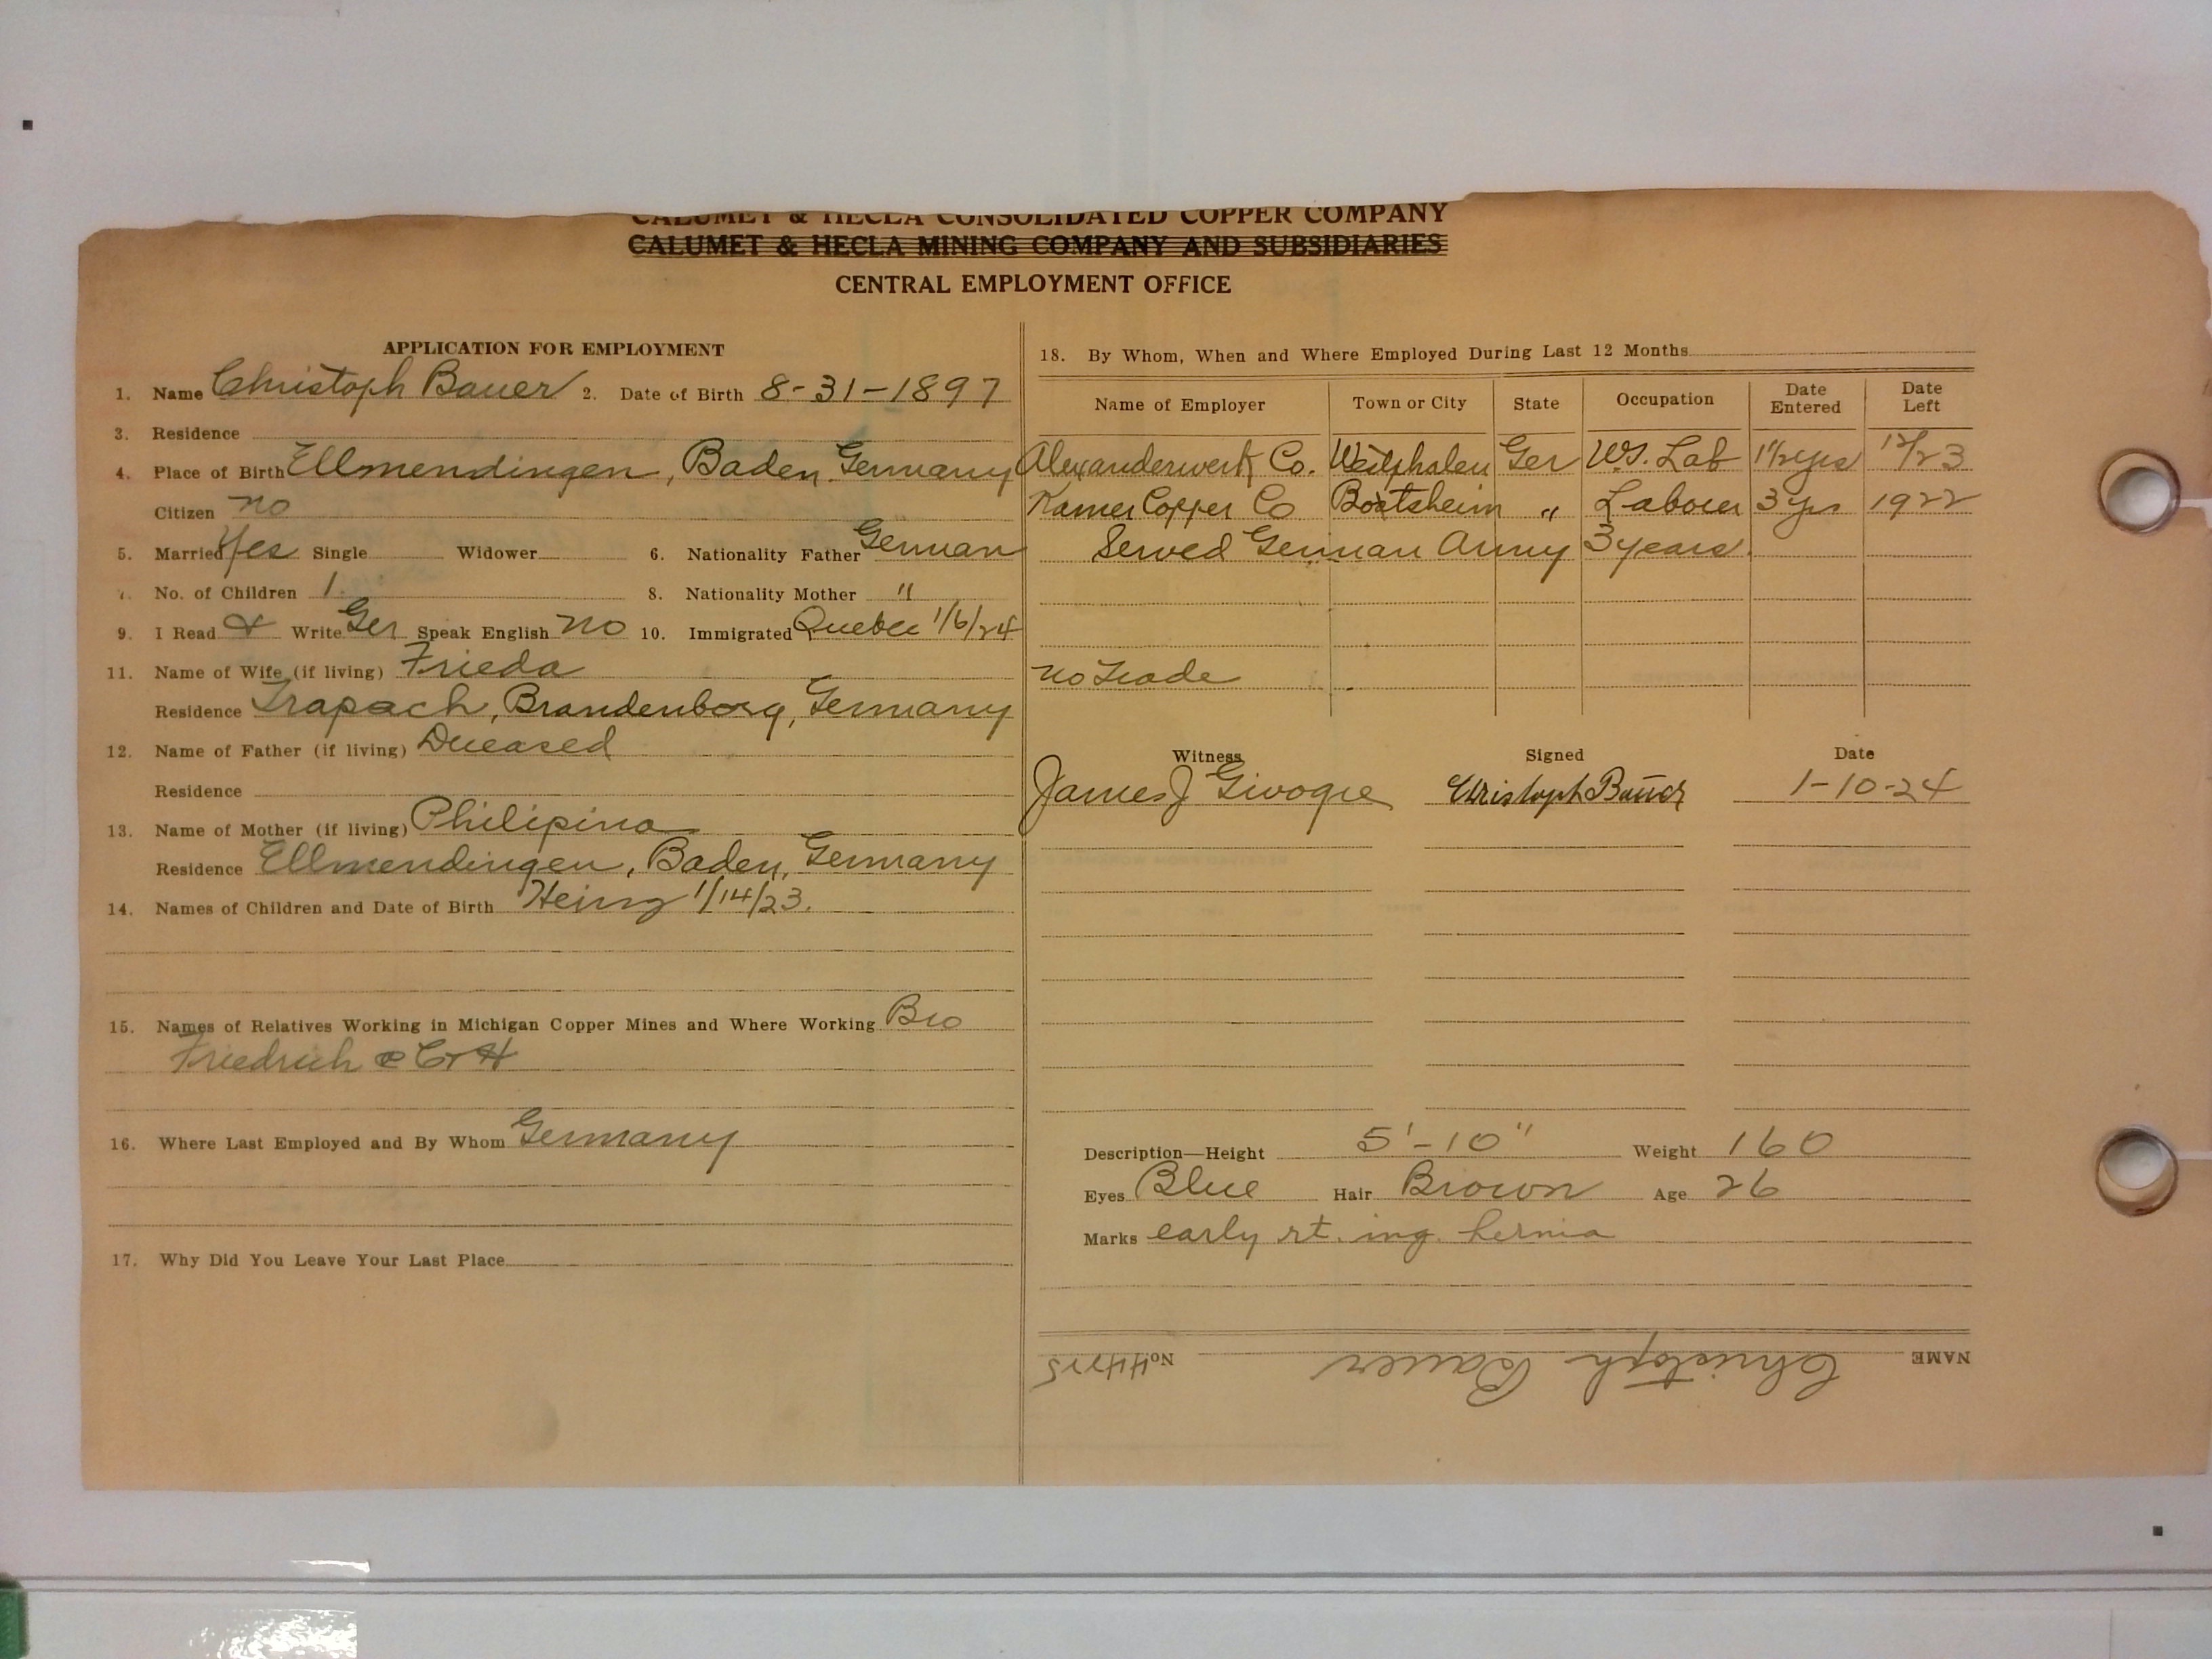 CALUMET & HECLA CONSOLIDATED COPPER COMPANY
CALUMET & HECLA MINING COMPANY AND SUBSIDIARIES
CENTRAL EMPLOYMENT OFFICE
APPLICATION FOR EMPLOYMENT
1. Name Christoph Bauer 2. Date of Birth 8-31-1897
3. Residence
4. Place of Birth Ellmendingen, Baden, Germany
Citizen no
5. Married Yes Single Widower 6. Nationality Father German
7. No. of Children 1 8. Nationality Mother "
9. I Read & Write Ger Speak English no 10. Immigrated Quebec 1/6/24
11. Name of Wife (if living) Frieda
Residence Trapach, Brandenborg, Germany
12. Name of Father (if living) Deceased
Residence
13. Name of Mother (if living) Philipina
Residence Ellmendingen, Baden, Germany
14. Names of Children and Date of Birth Heinz 1/14/23.
15. Names of Relatives Working in Michigan Copper Mines and Where Working Bro
Friedrich @ C & H
16. Where Last Employed and By Whom Germany
17. Why Did You Leave Your Last Place
18. By Whom, When and Where Employed During Last 12 Months
Name of Employer Town or City State Occupation Date Entered Date Left
Alexanderwerk Co. Westphalen Ger Lab 1 1/2 yrs 12/23
Copper Co "  Labour 3 yrs 1922
Served German Army 3 years.
no Trade
Witness Signed Date
James J Givogue Christoph Bauer 1-10-24
Description—Height 5'-10" Weight 160
Eyes Blue Hair Brown Age 26
Marks early rt. ing. hernia
NAME Christoph Bauer No. 44225